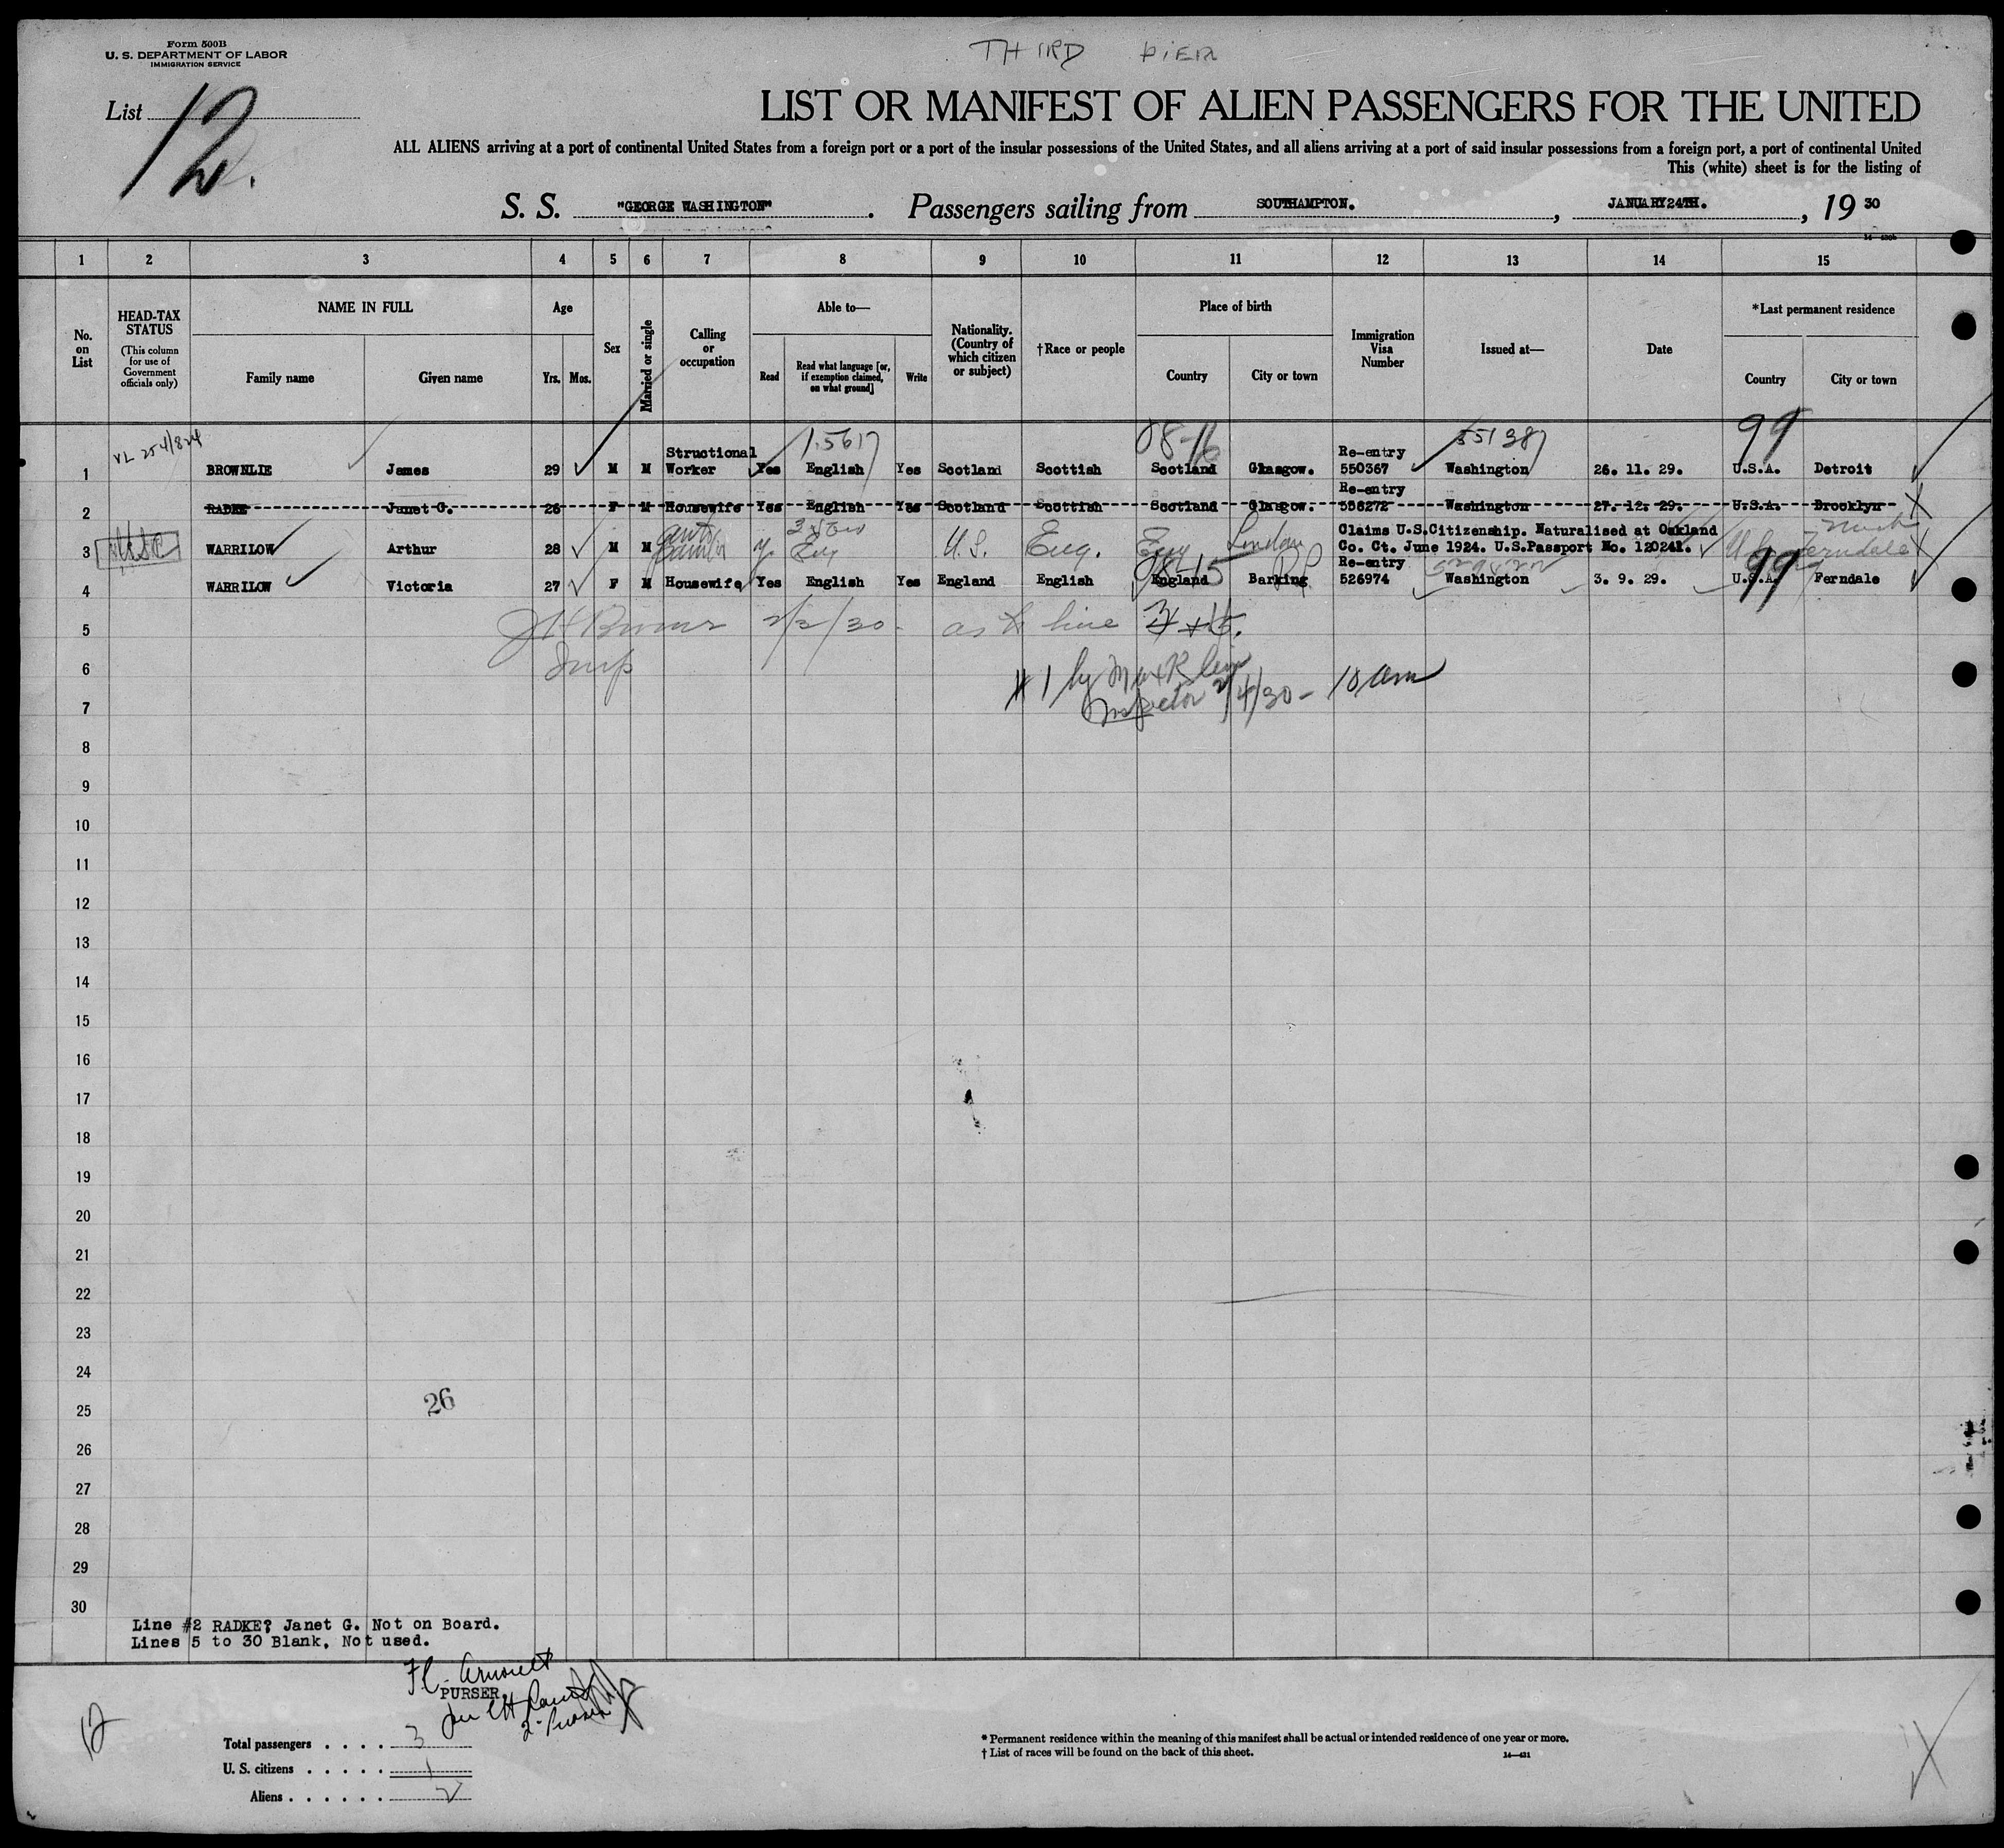 Form 500B
U. S. DEPARTMENT OF LABOR
IMMIGRATION SERVICE
THIRD PIER
List 12.
LIST OR MANIFEST OF ALIEN PASSENGERS FOR THE UNITED
ALL ALIENS arriving at a port of continental United States from a foreign port or a port of the insular possessions of the United States, and all aliens arriving at a port of said insular possessions from a foreign port, a port of continental United
This (white) sheet is for the listing of
S. S. "GEORGE WASHINGTON". Passengers sailing from SOUTHAMPTON., JANUARY 24TH., 19 30
1 2 3 4 5 6 7 8 9 10 11 12 13 14 15
No. on List
HEAD-TAX STATUS
(This column for use of Government officials only)
NAME IN FULL
Family name Given name
Age
Yrs. Mos.
Sex
Married or single
Calling or occupation
Able to—
Read
Read what language [or, if exemption claimed, on what ground]
Write
Nationality. (Country of which citizen or subject)
†Race or people
Place of birth
Country City or town
Immigration Visa Number
Issued at—
Date
*Last permanent residence
Country City or town
VL 254/824 1.5617 08-16 551387 99
1 BROWNLIE James 29 M M Structional Worker Yes English Yes Scotland Scottish Scotland Glasgow. Re-entry 550367 Washington 26. 11. 29. U.S.A. Detroit
2 RADKE Janet G. 26 F M Housewife Yes English Yes Scotland Scottish Scotland Glasgow. Re-entry 556272 Washington 27. 12. 29. U.S.A. Brooklyn
3 WARRILOW Arthur 28 M M auto y Eng U.S. Eng. Eng London Claims U.S.Citizenship. Naturalised at Oakland
Co. Ct. June 1924. U.S.Passport No. 120241. U.S. Ferndale Mich
08-15 99
4 WARRILOW Victoria 27 F M Housewife Yes English Yes England English England Barking Re-entry 526974 Washington 3. 9. 29. U.S.A. Ferndale
5 2/2/30 - as to line
6 Insp # 1 by Max
7 Inspector 2/4/30 - 10 am
8
9
10
11
12
13
14
15
16
17
18
19
20
21
22
23
24
25 26
26
27
28
29
30
Line #2 RADKE? Janet G. Not on Board.
Lines 5 to 30 Blank. Not used.
PURSER.
12
Total passengers . . . . 3
U. S. citizens . . . . . 1
Aliens . . . . . . 2
* Permanent residence within the meaning of this manifest shall be actual or intended residence of one year or more.
† List of races will be found on the back of this sheet.
14—421